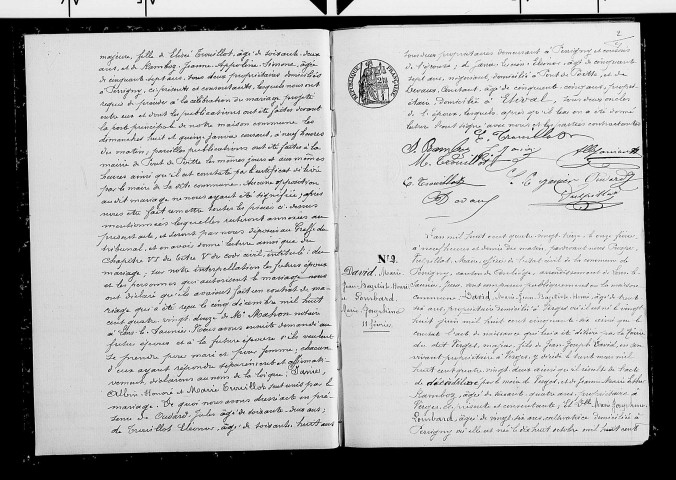 majeure, fille de Elisé Trouillot, âgé de soixante deux
ans, et de Ramboz Jeanne Appoline Simone, âgée
de cinquante sept ans, tous deux propriétaires domiciliés
à Perrigny, ci présents et consentants, lesquels nous ont
requis de procéder à la célébration du mariage projeté
entre eux et dont les publications ont été faites devant
la porte principale de notre maison commune les
dimanches huit et quinze janvier courant, à neuf heures
du matin; pareilles publications ont été faites à la
mairie de Pont de Poitte les mêmes jours et aux mêmes
heures ainsi qu'il est constaté par certificat délivré
par le maire de la dite commune. Aucune opposition
au dit mariage ne nous ayant été signifiée; après
avoir fait remettre toutes les pièces ci dessus
mentionnées lesquelles resteront annexées au
présent acte, et seront par nous déposées au Greffe du
tribunal, et en avoir donné lecture ainsi que du
chapitre VI du titre V du code civil, intitulé: du
mariage; sur notre interpellation les futurs époux
et les personnes qui autorisent le mariage nous
ont déclaré qu'ils avaient fait un contrat de ma-
riage qui a été reçu le cinq décembre mil huit
cent quatre vingt deux, de Me Mahon notaire
à Lons le Saunier. Nous avons ensuite demandé au
futur époux et à la future épouse s'ils veulent
se prendre pour mari et pour femme; chacun
d'eux ayant répondu séparément et affirmati-
vement, déclarons au nom de la loi que Janier,
Albin Honoré et Marie Trouillot sont unis par le
mariage. De quoi nous avons dressé acte en pré-
sence de Oudard, Jules âgé de soixante deux ans;
de Trouillot Eléonor, âgé de soixante huit ans
2
tous deux propriétaires demeurant à Perrigny et oncles
de l'épouse; de Janier, âgé de cinquante
sept ans, domicilié à Pont de Poitte, et de
Constant, âgé de cinquante cinq ans, proprié-
taire domicilié à Etival, tous deux oncles
de l'époux, lesquels après qu'il leur en a été donné
lecture l'ont signé avec nous et les parties contractantes
E. Trouillot
S. Ramboz J. Janier
M. Trouillot
E. Trouillot
Oudard
Vuipillat
Nº 2.
David, Marie
Jean Baptiste Henri
&
Lombard
Marie Joséphine
11 février
L'an mil huit cent quatre vingt trois, le onze février
à neuf heures et demie du matin, pardevant nous
Vuipillat, Maire, officier de l'état civil de la commune de
Perrigny, canton de Conliège, arrondissement de Lons le
Saunier, Jura, ont comparu publiquement en la maison
commune, David, Marie Jean Baptiste Henri, âgé de trente
six ans, propriétaire domicilié à Verges où il est né le vingt
huit juin mil huit cent quarante six ainsi que le
constate l'acte de naissance qui lui a été délivré par la Mairie
du dit Verges, majeur, fils de Jean Joseph David, en son
vivant propriétaire à Verges, y décédé le trente mai mil
huit cent quatre vingt deux ainsi qu'il résulte de l'acte
de décès délivré par le maire de Verges, et de Jeanne Marie
Ramboz, âgée de soixante quatre ans, propriétaire à
Verges, ci présente et consentante; Et Dlle Marie Joséphine
Lombard, âgée de vingt six ans, cultivatrice domiciliée à
Perrigny où elle est née le dix huit octobre mil huit cent